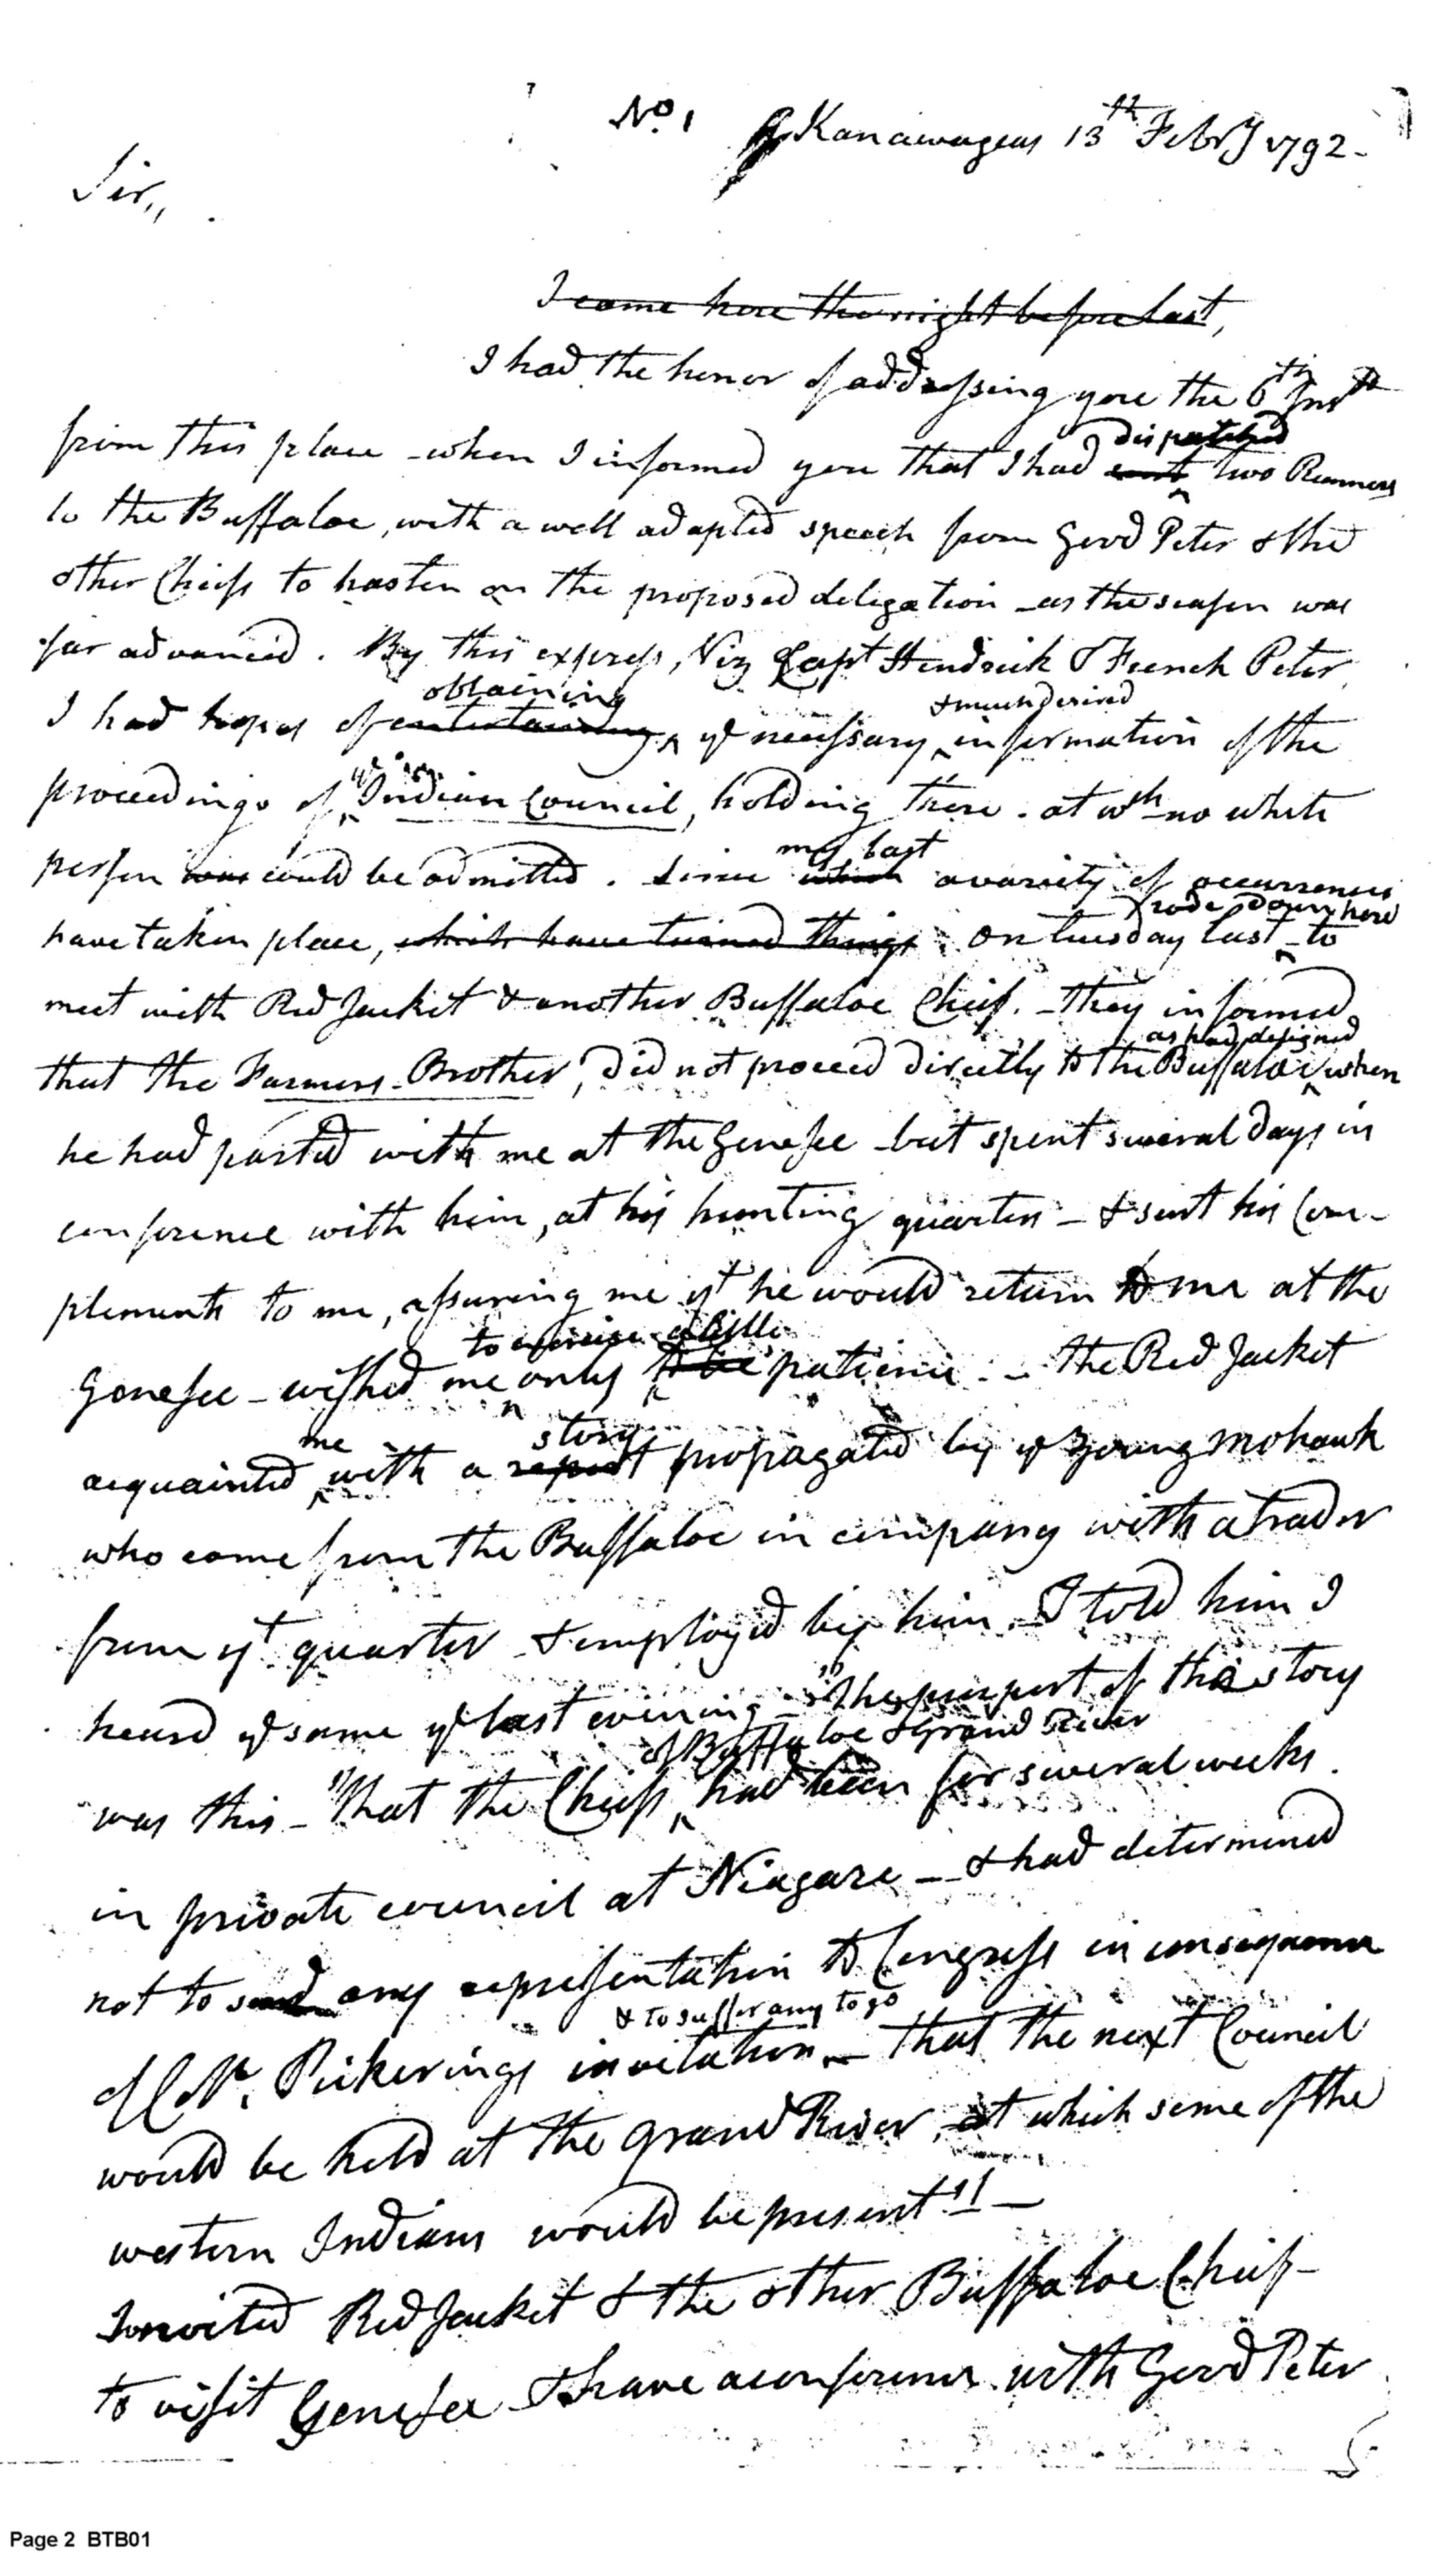 No. 1 Kanawageas 13th Febry 1792-
Sir,,
I came here the night before last,
I had the honor of addressing you the 6th Inst
dispatched
from this place - when I informed you that I had sent two Runners
to the Buffaloe, with a well adapted speech from Good Peter & the
other Chiefs to hasten on the proposed deligation - as the season was
far advanced. By this express, Viz Capt Hendrick & French Peter
obtaining & much desired
I had hopes of entertaining ye necessary information of the
proceedings of Indian Council, holding there - at wh no white
my last
person was could be admitted. Since which a variety of occurrences
I rode down here
have taken place, which have turned things. On tuesday last - to
meet with Red Jacket & another Buffaloe Chief. - they informed
as had designed
that the Farmers - Brother, did not proceed directly to the Buffaloe, when
he had parted with me at the Genesee - but spent several days in
conference with him, at his hunting quarters - & sent his Com-
plements to me, assuring me yt he would return to me at the
to exercise a little
Genesee - wished me only to be patience. - the Red Jacket
me story
acquainted with a report propagated by ye young mohawk
who came from the Buffaloe in company with a trader
from yt quarter & employed by him. - I told him I
heard ye same ye last evening - "The purport of the story
of Buffaloe & Grand River
was this - "That the Chiefs had been for several weeks
in private council at Niagara - & had determined
not to send any representation to Congress in consequence
& to suffer any to go
of Col. Pickerings invitation - that the next Council
would be held at the Grand River, at which some of the
western Indians would be present" -
I invited Red Jacket & the other Buffaloe Chief -
to visit Genesee & have a conference with Good Peter
Page 2 BTB01